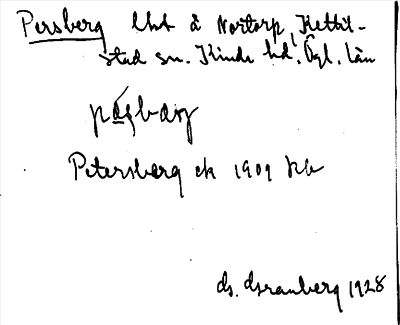 Persberg lht å Nortorp, Kettil-
stad sn. Kinda hd. Ögl. län
Petersberg ek 1909 kb
ds. Granberg 1928